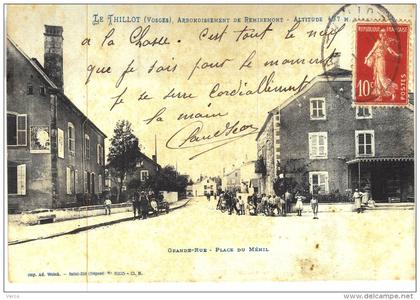 LE THILLOT (VOSGES), ARRONDISSEMENT DE REMIREMONT - ALTITUDE 497 M
à la Chasse. C'est tout le neuf
que je sais pour le moment
je te serre cordialement
la main
REPUBLIQUE FRANÇAISE
10c
POSTES
GRANDE-RUE - PLACE DU MÉNIL
Imp. Ad. Weick. - Saint-Dié
delcampe.net